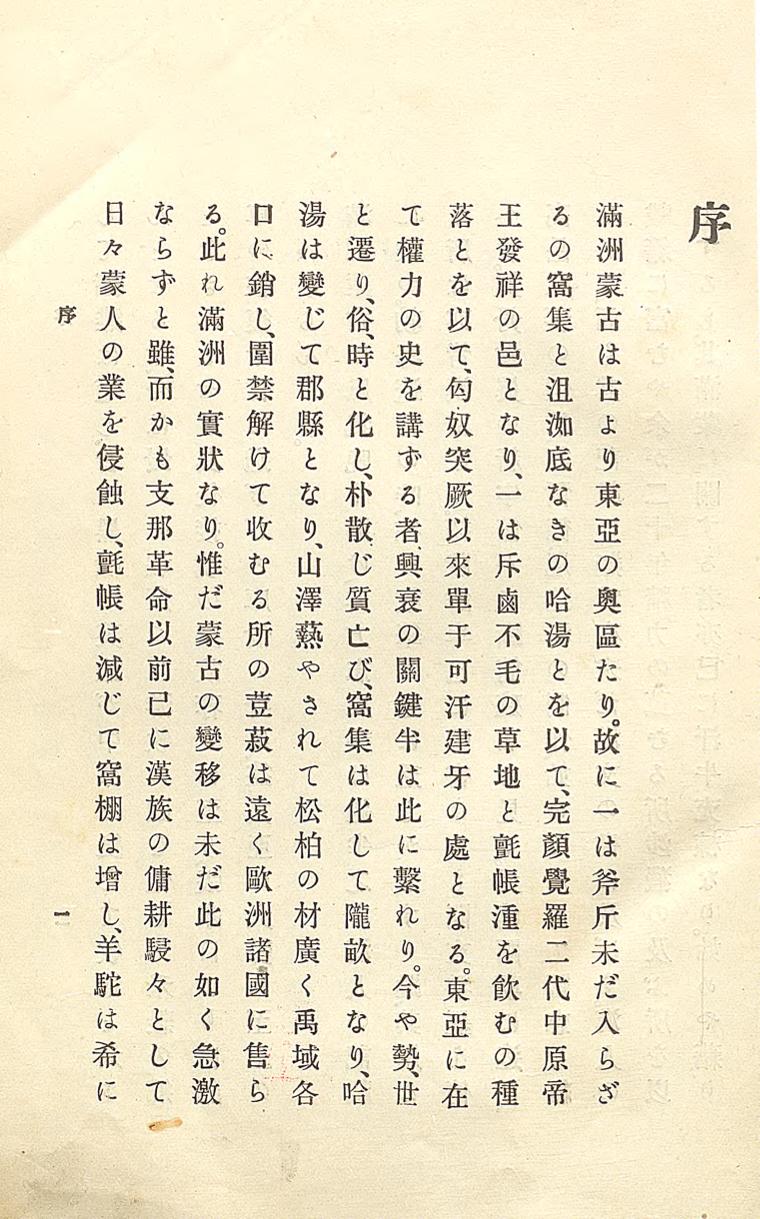 序
滿洲蒙古は古より東亞の奧區たり。故に一は斧斤未だ入らざ
るの窩集と沮洳底なきの哈湯とを以て、完顏覺羅二代中原帝
王發祥の邑となり、一は斥鹵不毛の草地と氈帳湩を飮むの種
落とを以て、匈奴突厥以來單于可汗建牙の處となる。東亞に在
て權力の史を講ずる者、興衰の關鍵半は此に繫れり。今や勢、世
と遷り、俗、時と化し、朴散じ質亡び、窩集は化して隴畝となり、哈
湯は變じて郡縣となり、山澤爇やされて松柏の材廣く禹域各
口に銷し、圍禁解けて收むる所の荳菽は遠く歐洲諸國に售ら
る。此れ滿洲の實狀なり。惟だ蒙古の變移は未だ此の如く急激
ならずと雖、而かも支那革命以前已に漢族の傭耕駸々として
日々蒙人の業を侵蝕し、氈帳は減じて窩棚は增し、羊駝は希に
序
一